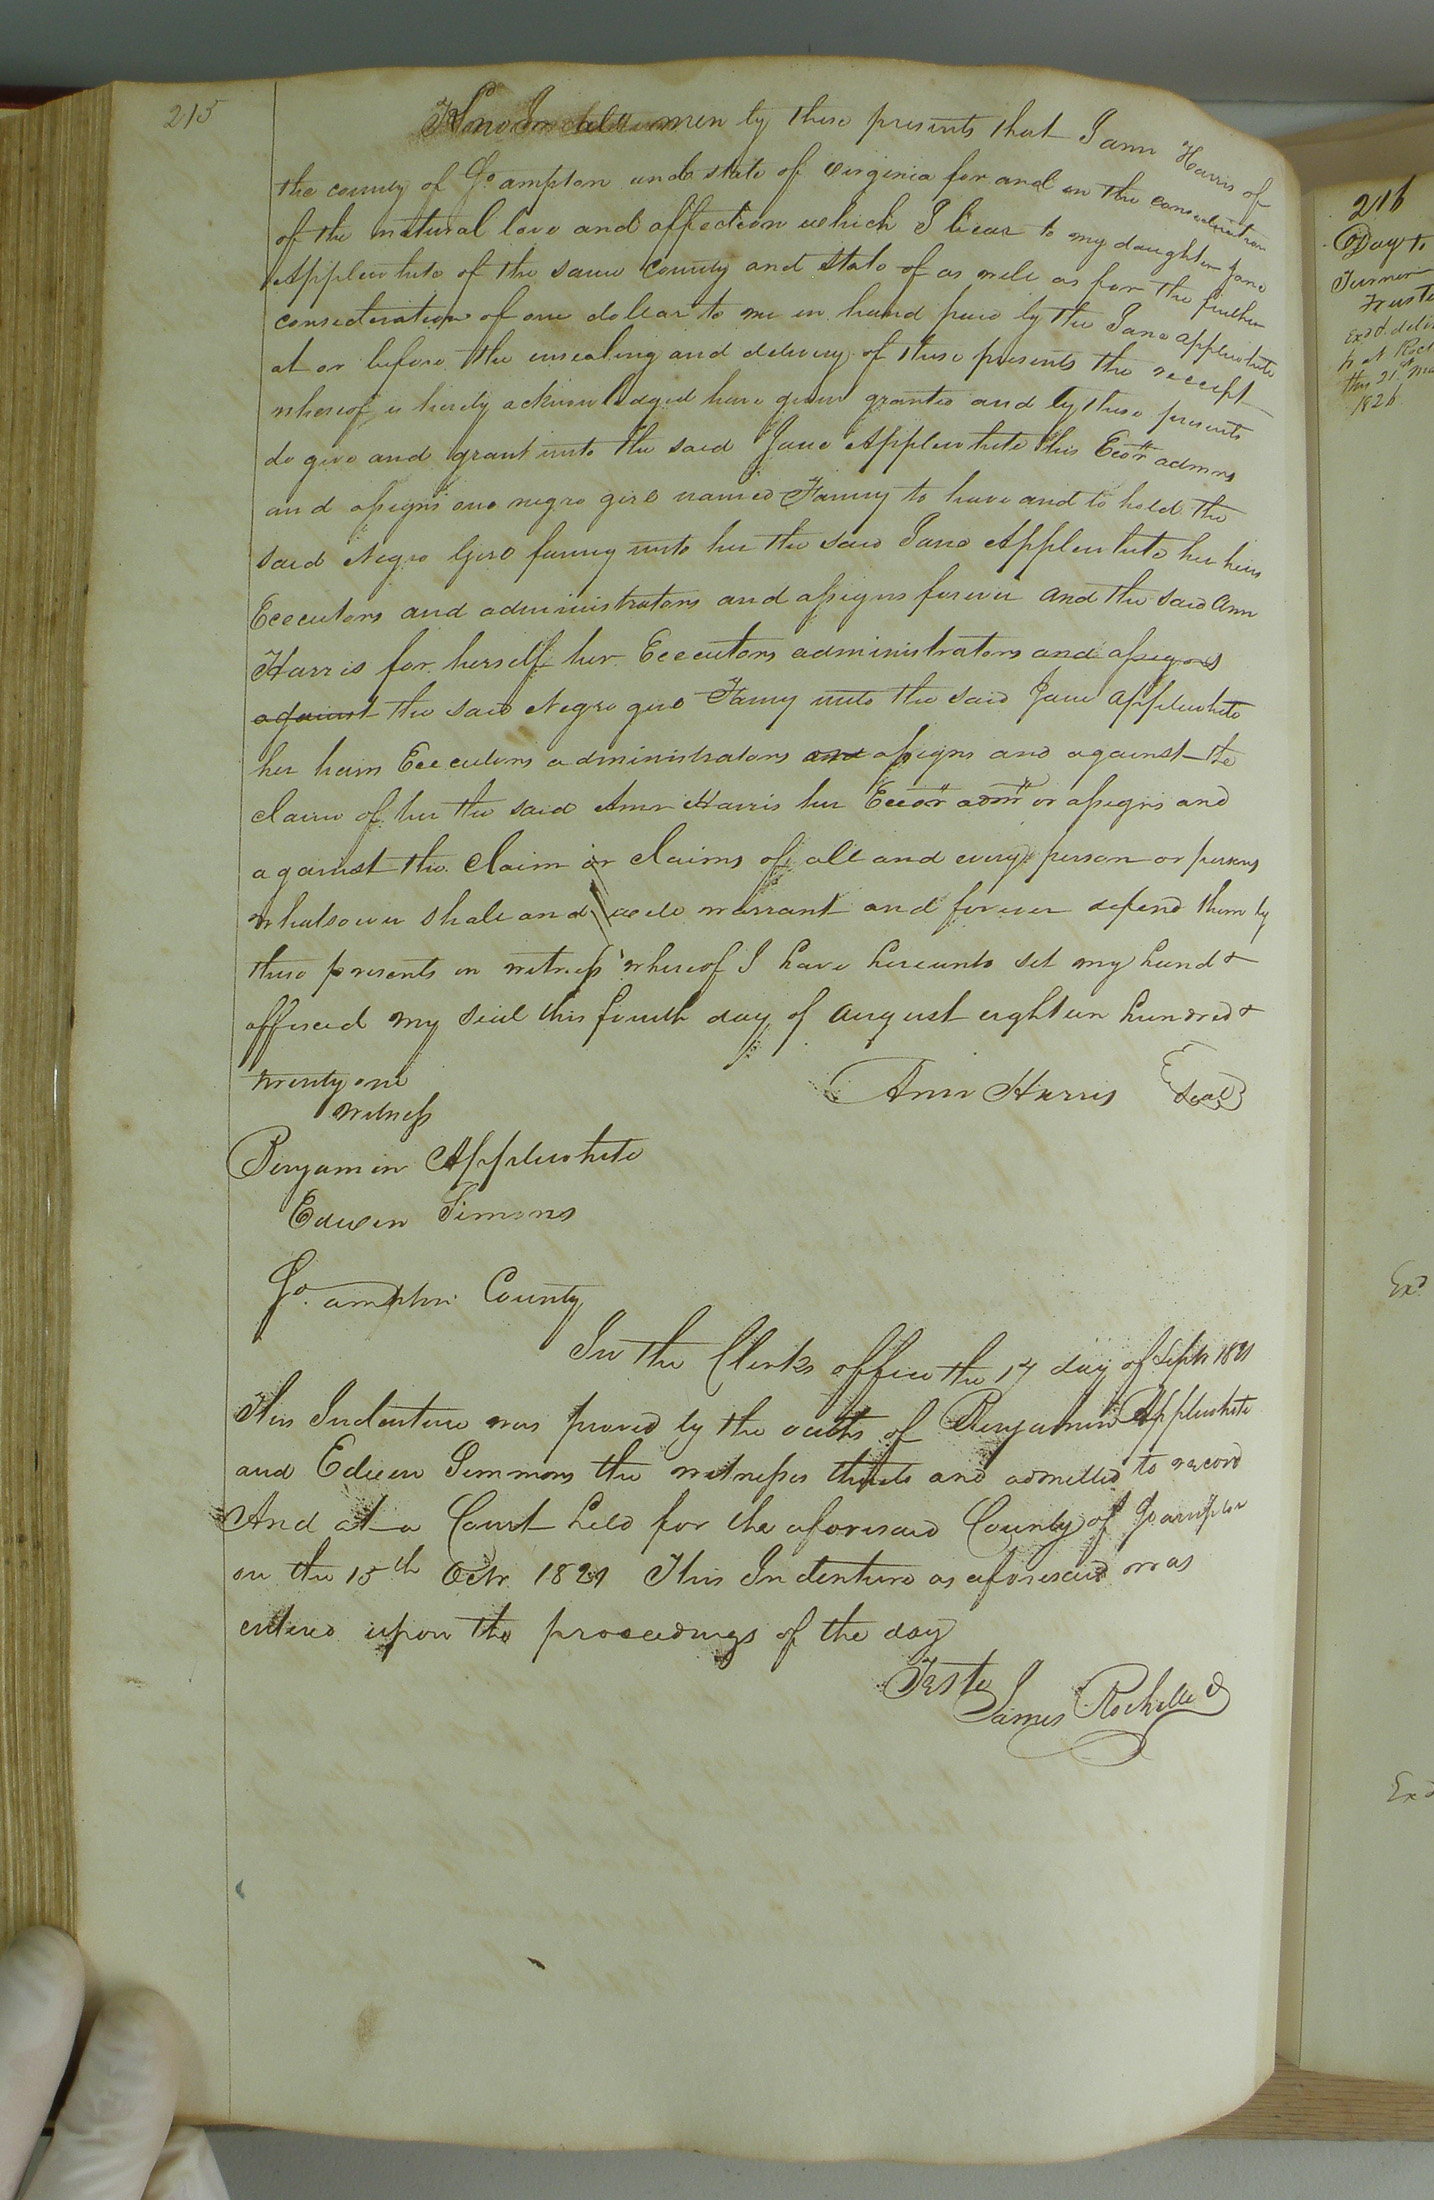 215
Know all men by these presents that I ann Harris of
the county of So ampton and state of virginia for and in the consideration
of the natural love and affection which I bear to my daughter Jane
Applewhite of the same County and State of as well as for the further
consideration of one dollar to me in hand paid by the Jane applewhite
at or before the ensealing and delivery of these presents the receipt
whereof is hereby acknowledged have given granted and by these presents
do give and grant unto the said Jane Applewhite his Exors admrs
and assigns one negro girl named Fanny to have and to hold the
said Negro Girl fanny unto her the said Jane Applewhite her heirs
Executors and administrators and assigns forever and the said Ann
Harris for herself her Executors administrators and assigns
against the said Negro girl Fanny unto the said Jane applewhite
her heirs Executors administrators and assigns and against the
claim of her the said Ann Harris her Exors admrs or assigns and
against the claim or claims of all and every person or persons
whatsoever shall and will warrant and forever defend them by
these presents in witness whereof I have hereunto set my hand &
affixed my seal this fourth day of august eighteen hundred &
twenty one
Ann Harris Seal
witness
Benjamin Applewhite
Edwin Simons
So. ampton County
In the Clerks office the 17 day of Septr 1821
This Indenture was proved by the oaths of Benjamin Applewhite
and Edwin Simmons the witnesses thereto and admitted to record
And at a Court held for the aforesaid County of So ampton
on the 15th Octr 1821 This Indenture as aforesaid was
entered upon the proceedings of the day
Teste
James Rochelle
216
Day to
Turner
Exd. deliv
this 21st
1826
Exd
Exd